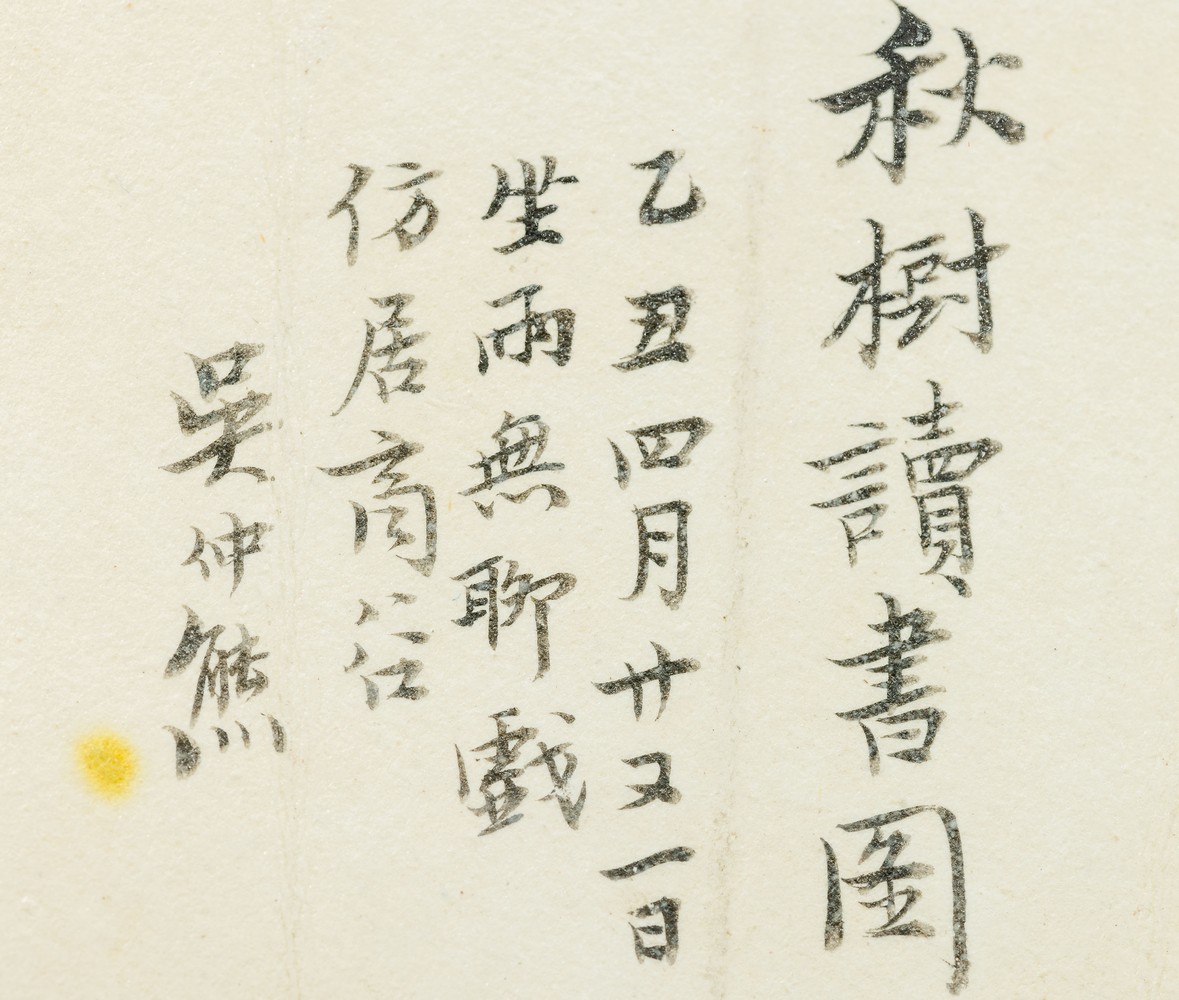 秋樹讀書圖
乙丑四月廿又一日
坐雨無聊戲
仿居商谷
吳仲熊